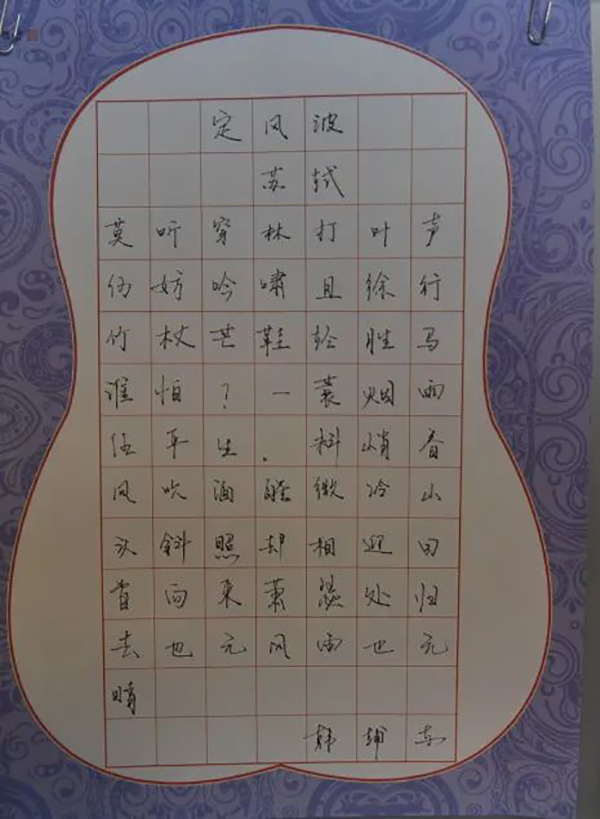 定风波
苏轼
莫听穿林打叶声
何妨吟啸且徐行
竹杖芒鞋轻胜马
谁怕?一蓑烟雨
任平生.料峭春
风吹酒醒微冷山
头斜照却相迎回
首向来萧瑟处归
去也无风雨也无
晴
韩